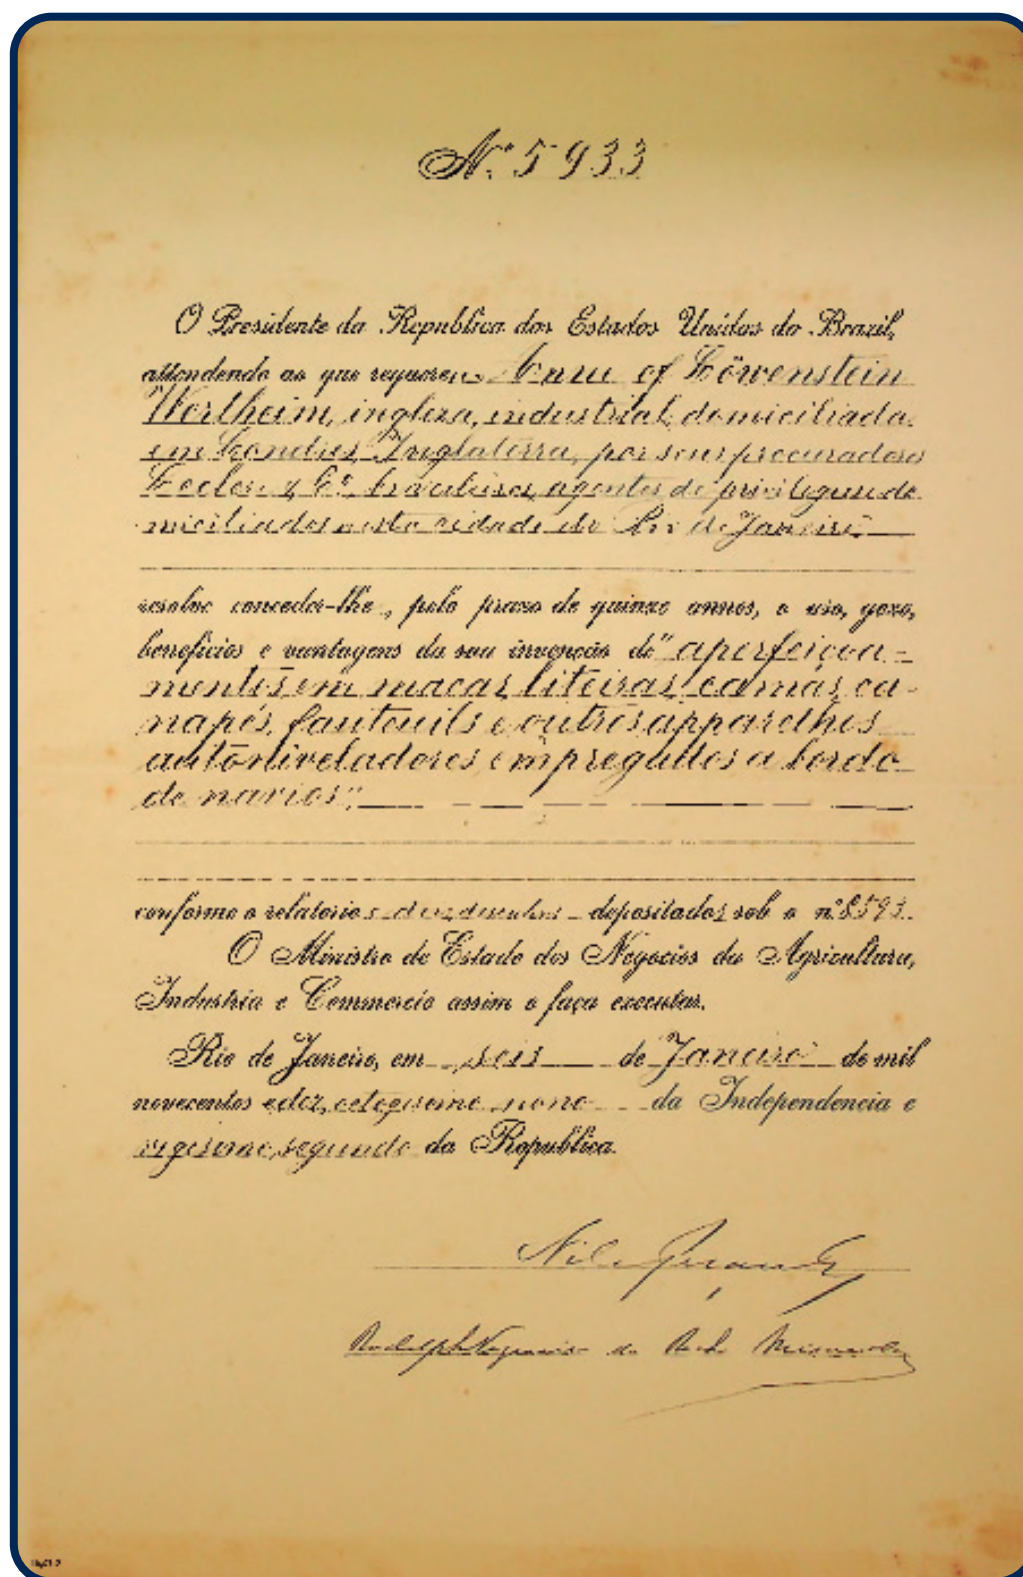 Nº 5933
O Presidente da Republica dos Estados Unidos do Brazil,
attendendo ao que requereu Anne of Löwenstein
Wertheim, ingleza, industrial, domiciliada
em Londres, Inglaterra, por seus procuradores
Leclerc & Cº, brasileiros, agentes de privilegios do-
miciliados nesta cidade do Rio de Janeiro
resolve conceder-lhe, pelo prazo de quinze annos, o uso, gozo,
beneficios e vantagens da sua invenção de "aperfeiçoa-
mentos em macas, liteiras, camas, ca-
napés, fauteuils e outros apparelhos
autoniveladores empregados a bordo
de navios",
conforme o relatorio e desenhos depositados sob o nº 8593.
O Ministro de Estado dos Negocios da Agricultura,
Industria e Commercio assim o faça executar.
Rio de Janeiro, em seis de Janeiro de mil
novecentos e dez, octogesimo nono da Independencia e
vigesimo segundo da Republica.
Nilo Peçanha
da Rocha Miranda